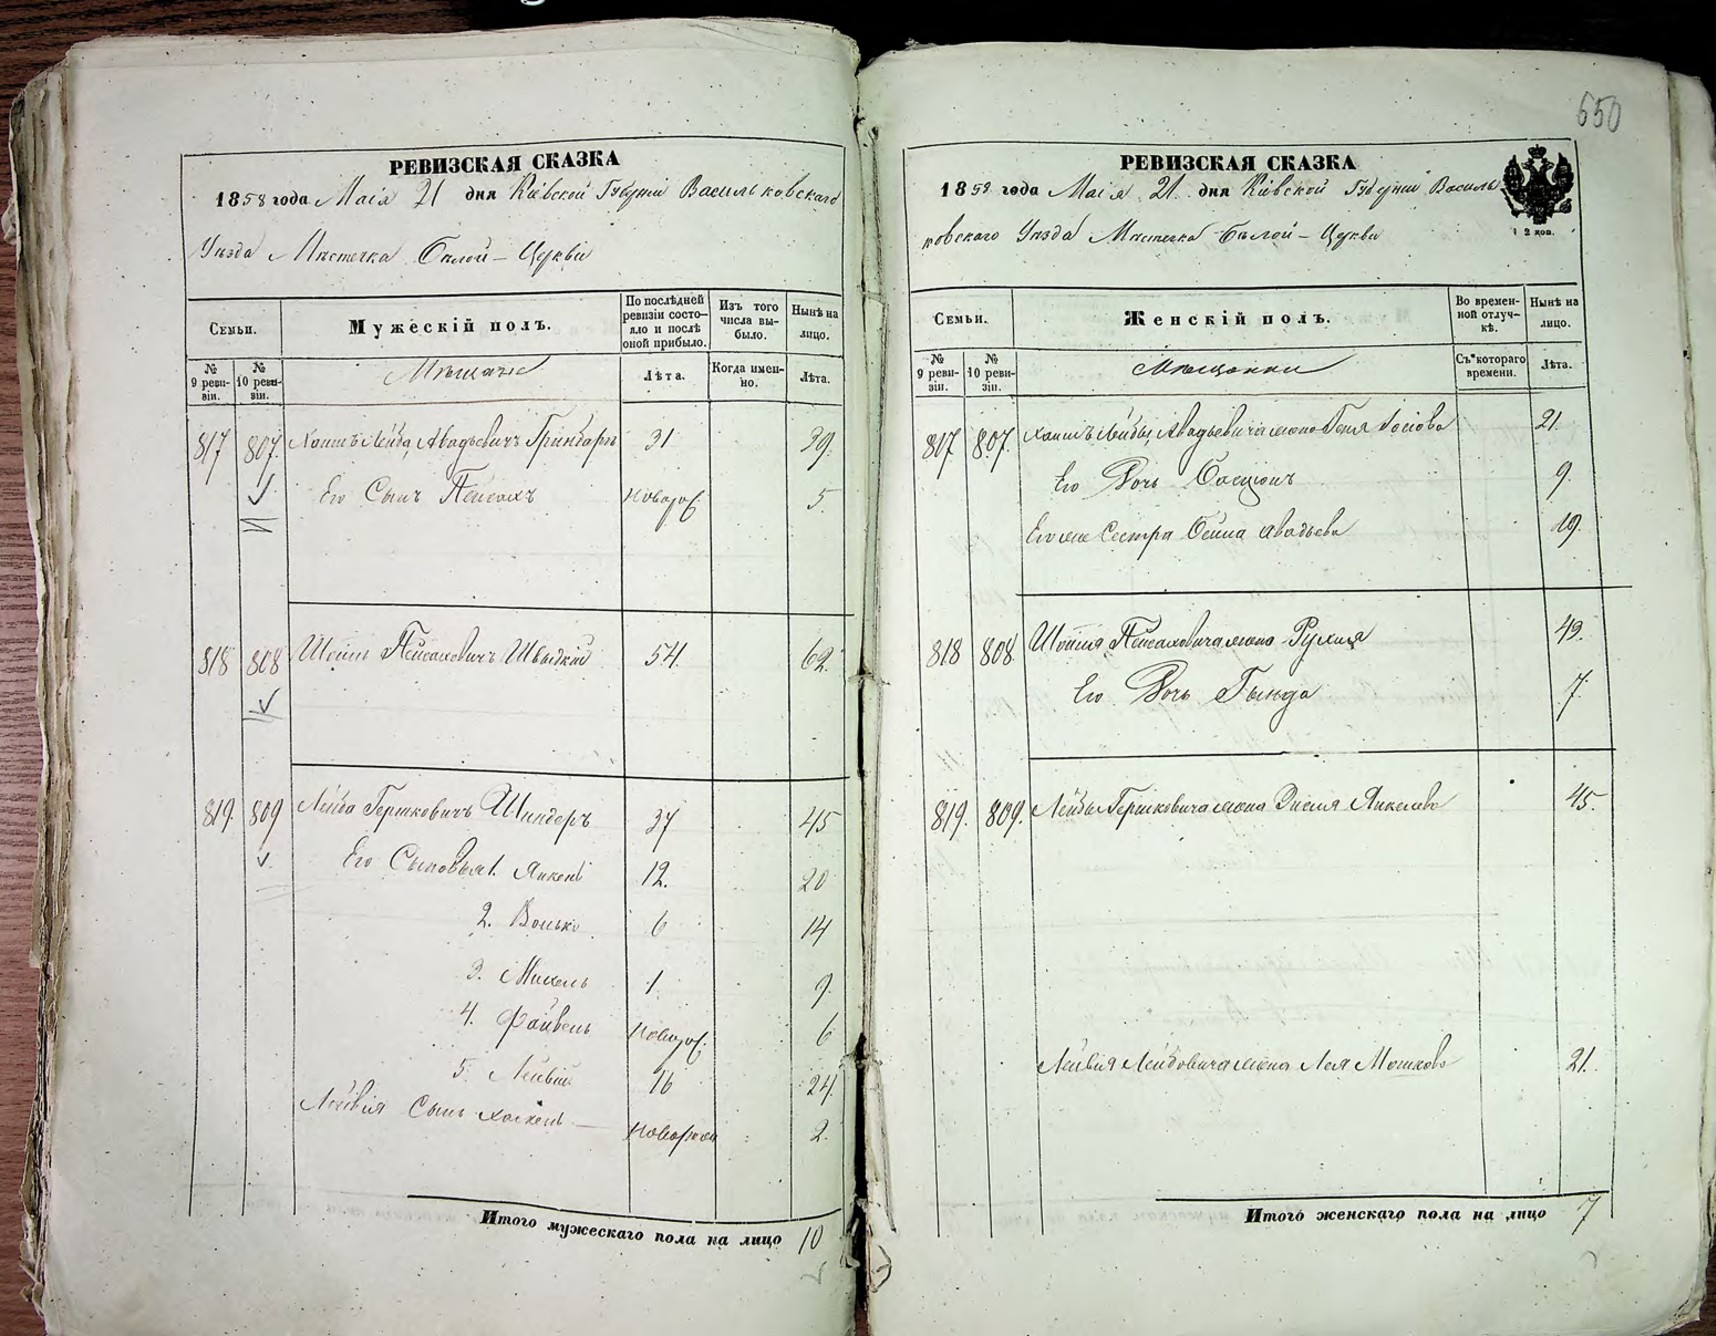 650
РЕВИЗСКАЯ СКАЗКА
1858 года Маія 21 дня Кіевской Губерніи Васильковскаго
Уѣзда Мѣстечка Бѣлой-Церкви
Семьи.
Мужескій полъ.
По послѣдней ревизіи состояло и послѣ оной прибыло.
Изъ того числа выбыло.
Нынѣ на лицо.
№ 9 ревизіи.
№ 10 ревизіи.
Мѣщане
Лѣта.
Когда именно.
Лѣта.
817 807. Лейба Авадьевичъ Гринбергъ 31 39.
Его Сынъ Пейсахъ новорож. 5.
818 808 Пейсаховичъ Швыдкій 54. 62.
819. 809 Лейба Гершковичъ Шиндеръ 37 45
Его Сыновья 1. Янкель 12. 20
2. Волько 6 14
3. Михель 1. 9.
4. Файвель новорож. 6
5. Лейвій 16 24.
Лейвія Сынъ Хаскель новорож 2.
Итого мужескаго пола на лицо 10
РЕВИЗСКАЯ СКАЗКА
1858 года Маія 21. дня Кіевской Губерніи Василь-
ковскаго Уѣзда Мѣстечка Бѣлой-Церкви
12 коп.
Семьи.
Женскій полъ.
Во временной отлучкѣ.
Нынѣ на лицо.
№ 9 ревизіи.
№ 10 ревизіи.
Мѣщанки
Съ котораго времени.
Лѣта.
817 807. Лейбы Авадьевича жена 21.
Его Дочь 9.
Его же Сестра Бейла Авадьева 19.
818 808. Пейсаховича жена Рухля 49.
Его Дочь Гинда 7.
819. 809. Лейбы Гершковича жена Энешя Янкелева 45.
Лейвія Лейбовича жена Лея Мошкова 21.
Итого женскаго пола на лицо 7